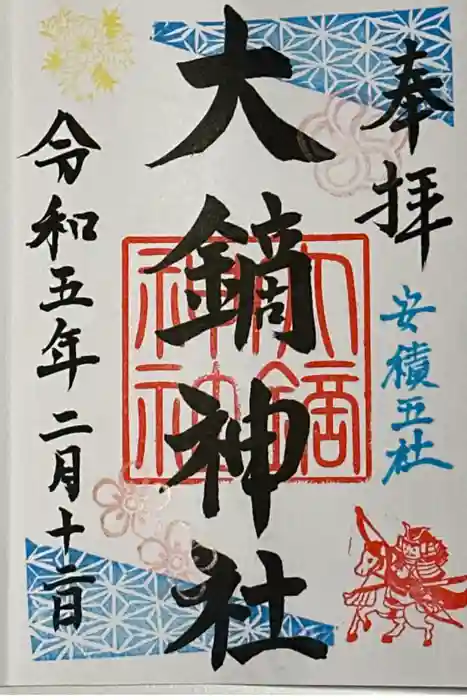 奉拝
安積五社
大鏑神社
大鏑
神社
令和五年二月十二日